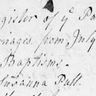 gister of ye Pa
riages from July
Baptisms
Susanna Pall